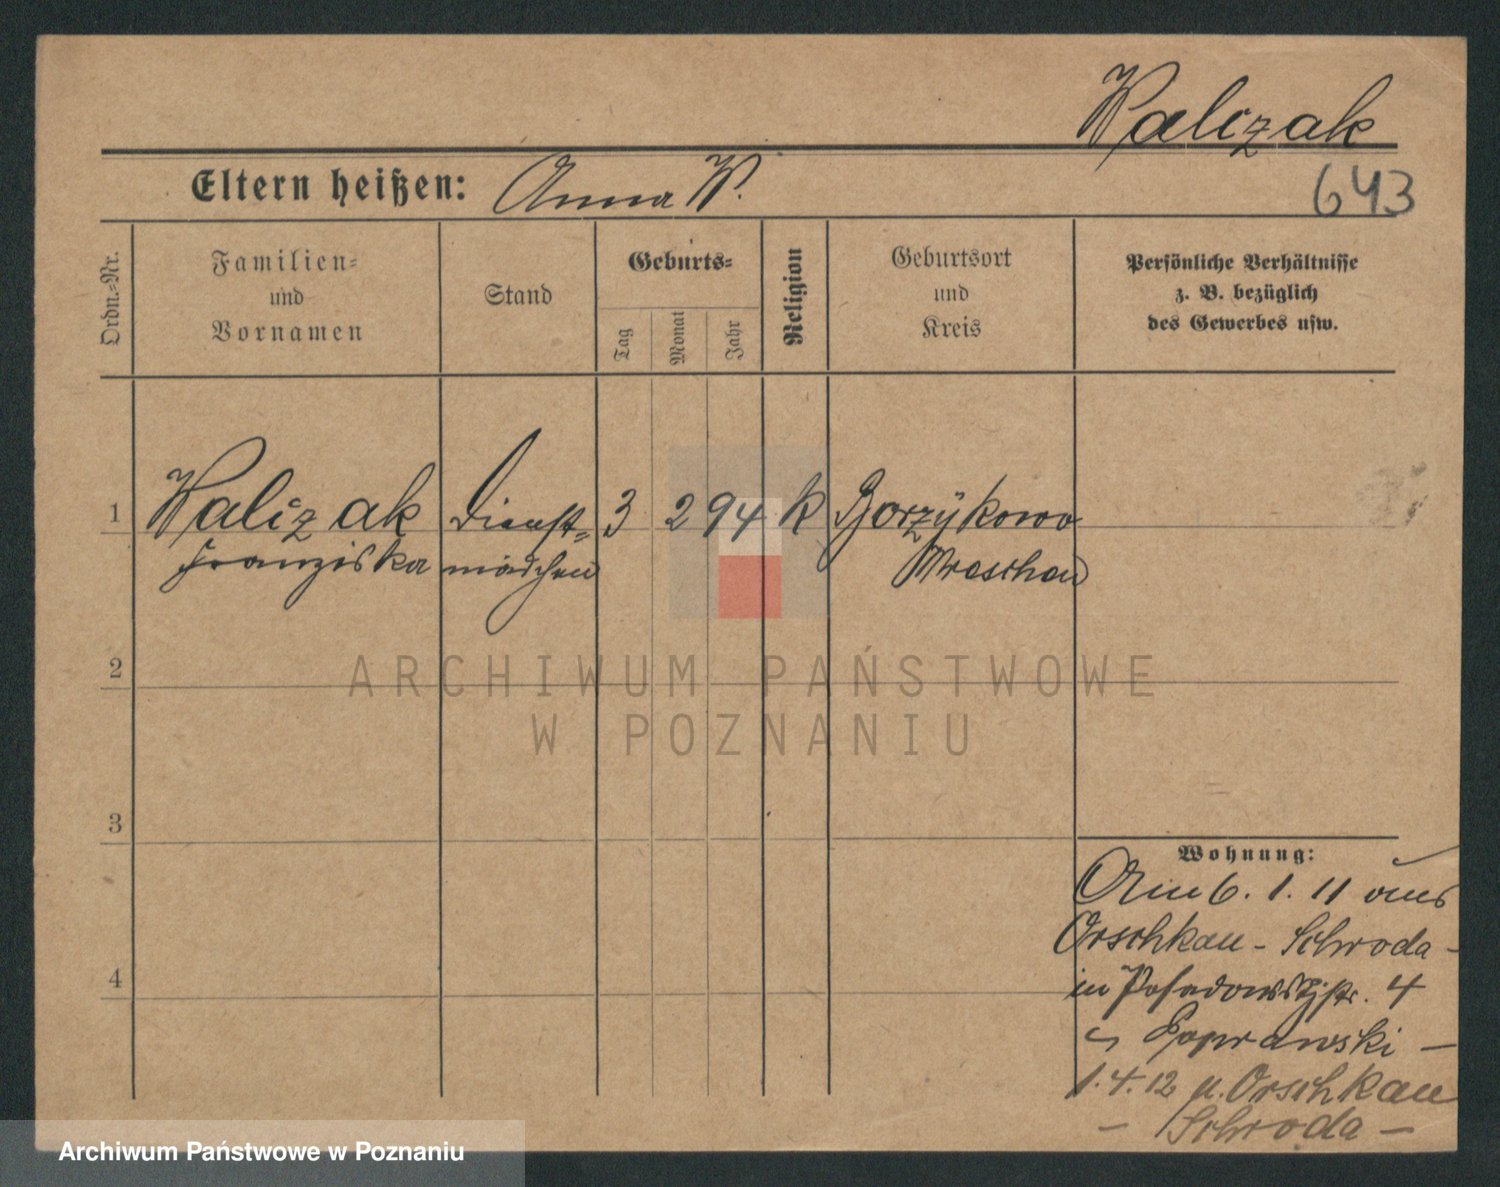 Walczak
Eltern heißen: Anna W.
643
Ordn.=Nr.
Familien=
und
Vornamen
Stand
Geburts=
Tag
Monat
Jahr
Religion
Geburtsort
und
Kreis
Persönliche Verhältnisse
z. B. bezüglich
des Gewerbes usw.
1 Walczak Dienst= 3 2 94 k Borzykowo
Franziska mädchen Wreschen
2
3
4
Wohnung:
Am 6. 1. 11 aus
Orschkau - Schroda -
in Posadowskystr. 4
Poprawski -
1. 4. 12 n. Orschkau
- Schroda -
ARCHIWUM PAŃSTWOWE
W POZNANIU
Archiwum Państwowe w Poznaniu